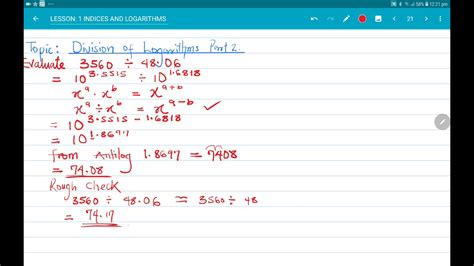 LESSON: 1 INDICES AND LOGARITHMS
21
58% 12:21 pm
Topic: Division of Logarithms Part 2.
Evaluate 3560 ÷ 48.06
= 10^3.5515 ÷ 10^1.6818
x^a · x^b = x^a+b
x^a ÷ x^b = x^a-b ✓
= 10^3.5515 - 1.6818
= 10^1.8697
from Antilog 1.8697 = 7408
= 74.08
Rough Check
3560 ÷ 48.06 ≈ 3560 ÷ 48
= 74.17